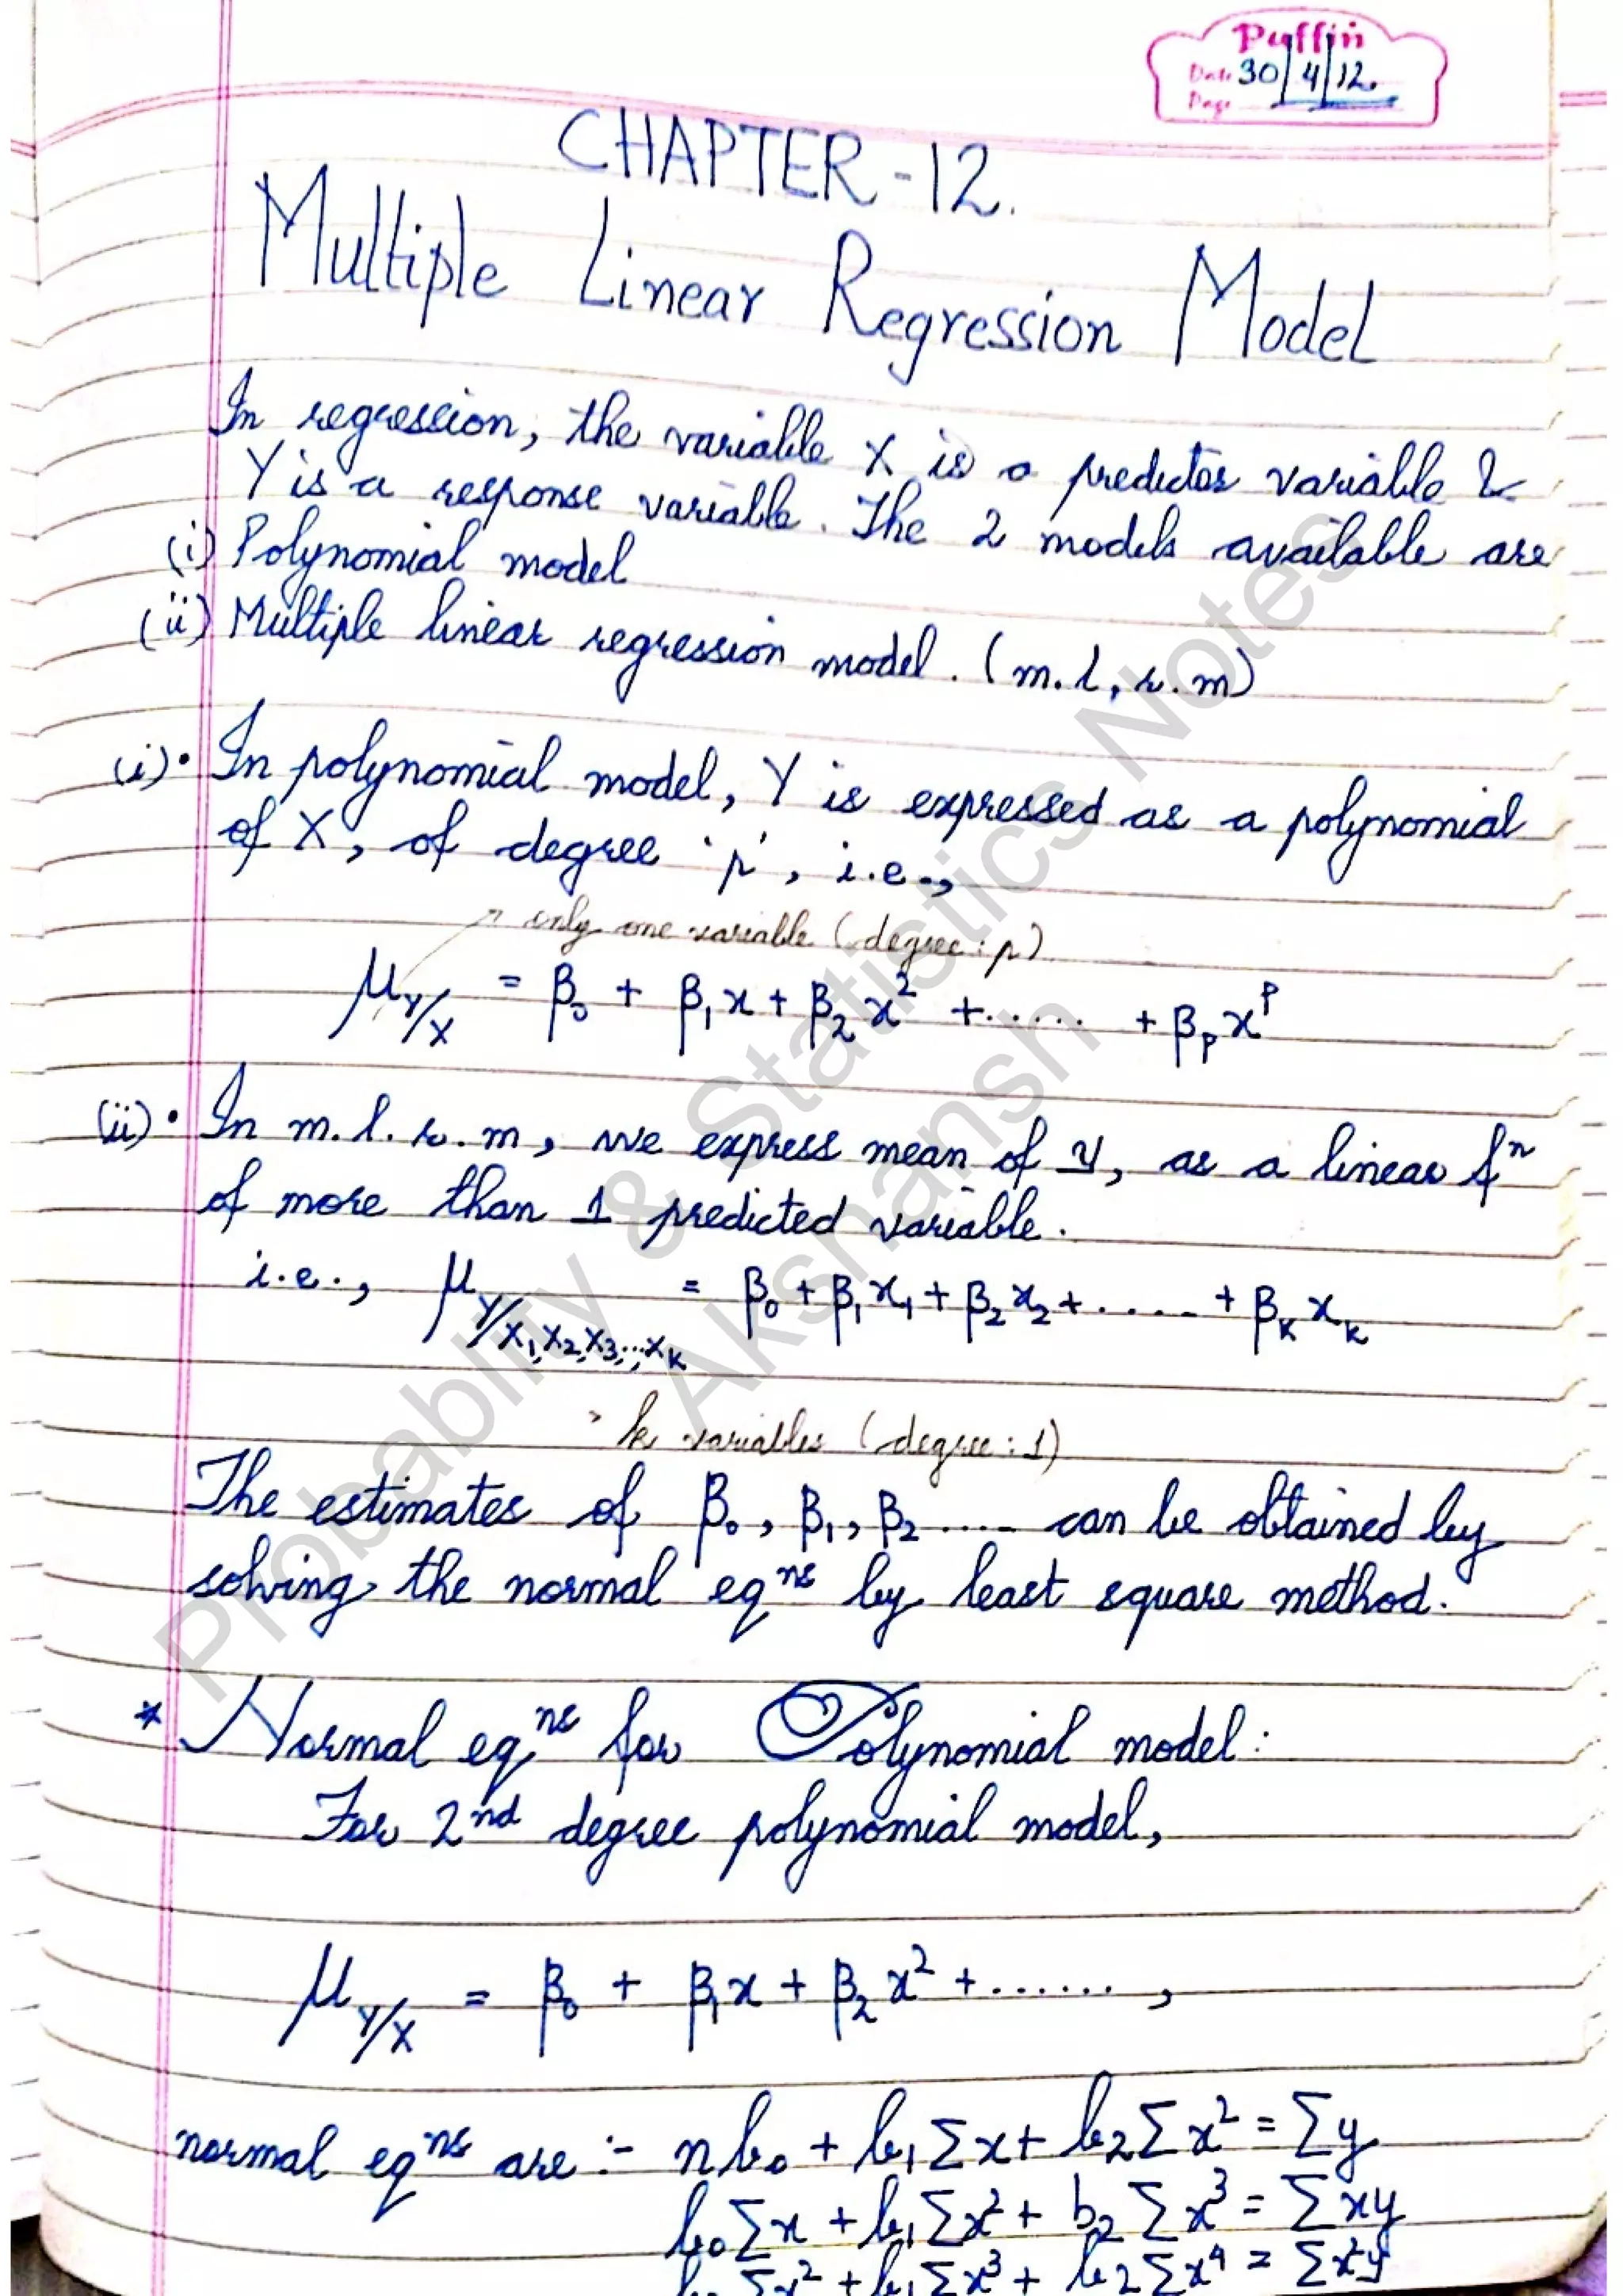 Puffin
Date 30/4/12.
Page
CHAPTER-12.
Multiple Linear Regression Model
In regression, the variable X is a predictor variable &
Y is a response variable. The 2 models available are
(i) Polynomial model
(ii) Multiple linear regression model. (m.l.r.m)
(i)• In polynomial model, Y is expressed as a polynomial
of X, of degree 'p', i.e.,
→ only one variable (degree: p)
μ_Y/X = β₀ + β₁x + β₂x² + ...... + βₚxᵖ
(ii)• In m.l.r.m, we express mean of y, as a linear fⁿ
of more than 1 predicted variable.
i.e., μ_Y/X₁,X₂,X₃,...,Xₖ = β₀ + β₁x₁ + β₂x₂ + ...... + βₖxₖ
> k variables (degree: 1)
The estimates of β₀, β₁, β₂ ..... can be obtained by
solving the normal eqⁿˢ by least square method.
* Normal eqⁿˢ for Polynomial model:
For 2ⁿᵈ degree polynomial model,
μ_Y/X = β₀ + β₁x + β₂x² + ......,
normal eqⁿˢ are :- nb₀ + b₁Σx + b₂Σx² = Σy
b₀Σx + b₁Σx² + b₂Σx³ = Σxy
b₀Σx² + b₁Σx³ + b₂Σx⁴ = Σx²y
Probablity & Statistics Notes
Akshansh